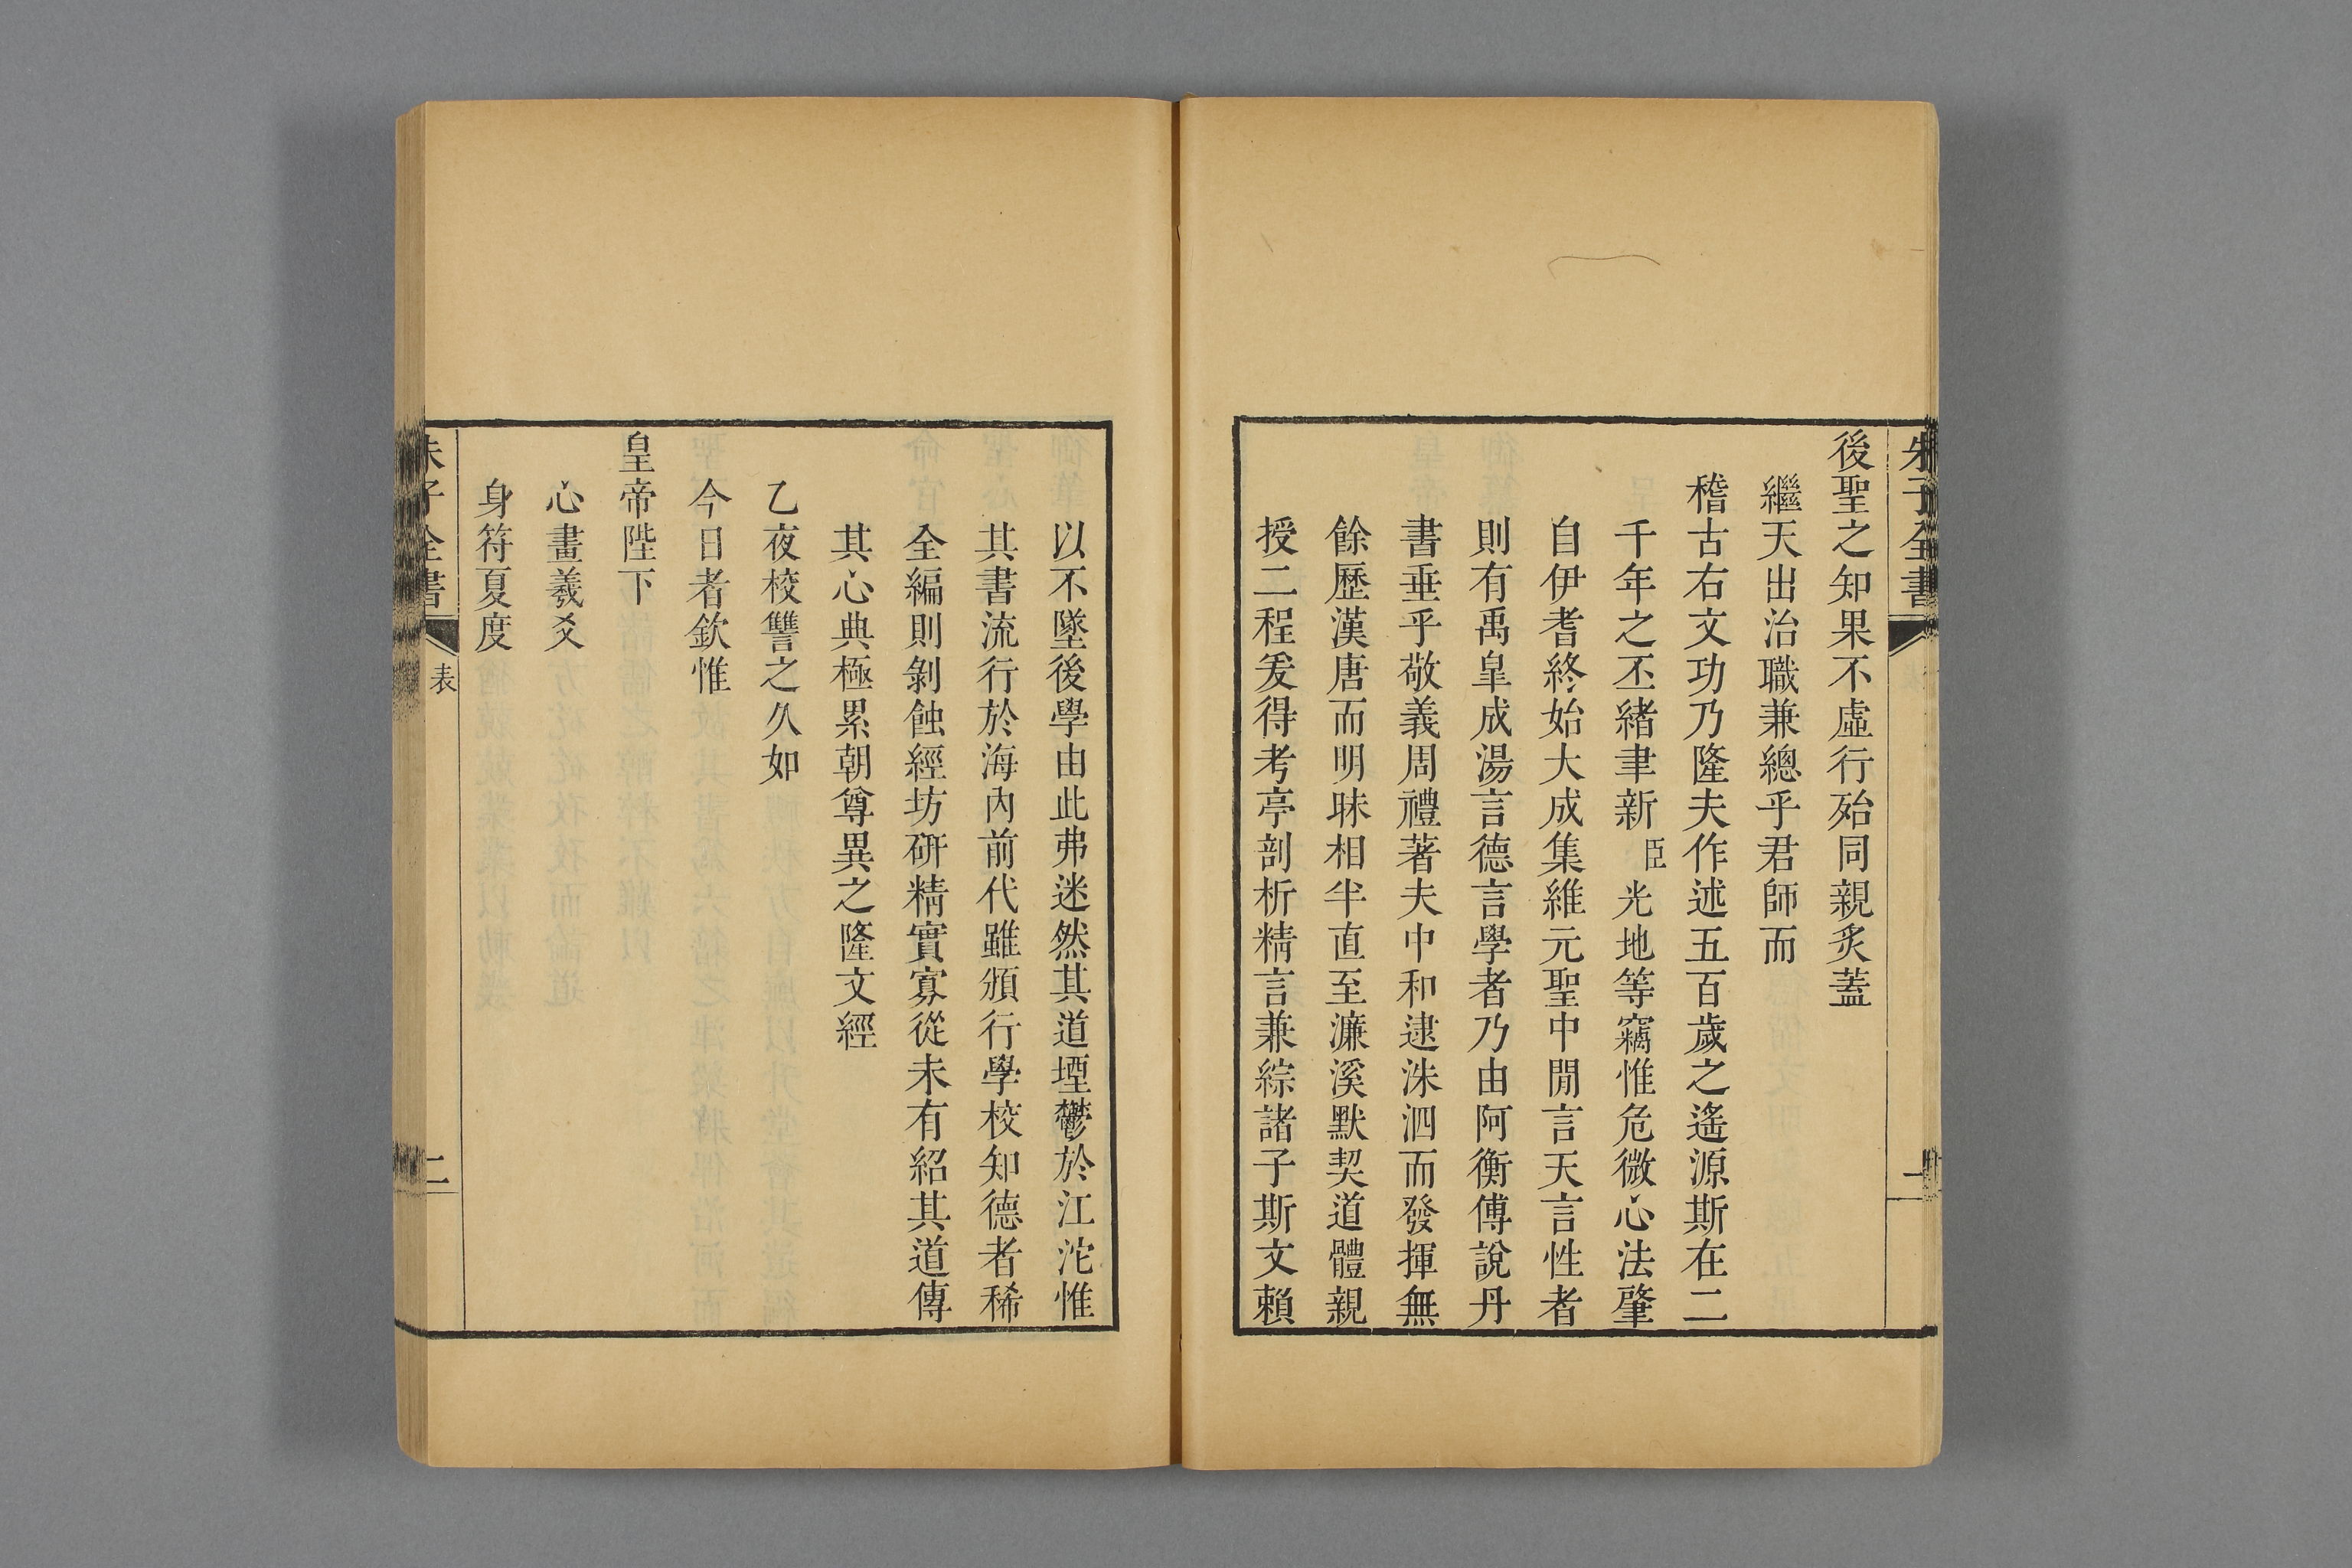 朱子全書
一
後聖之知果不虛行殆同親炙蓋
繼天出治職兼總乎君師而
稽古右文功乃隆夫作述五百歲之遙源斯在二
千年之丕緒聿新臣光地等竊惟危微心法肇
自伊耆終始大成集維元聖中閒言天言性者
則有禹臯成湯言德言學者乃由阿衡傅說丹
書垂乎敬義周禮著夫中和逮洙泗而發揮無
餘歷漢唐而明昧相半直至濂溪默契道體親
授二程爰得考亭剖析精言兼綜諸子斯文賴
以不墜後學由此弗迷然其道堙鬱於江沱惟
其書流行於海內前代雖頒行學校知德者稀
全編則剝蝕經坊硏精實寡從未有紹其道傳
其心典極累朝尊異之隆文經
乙夜校讐之久如
今日者欽惟
皇帝陛下
心畫羲爻
身符夏度
朱子全書
表
二